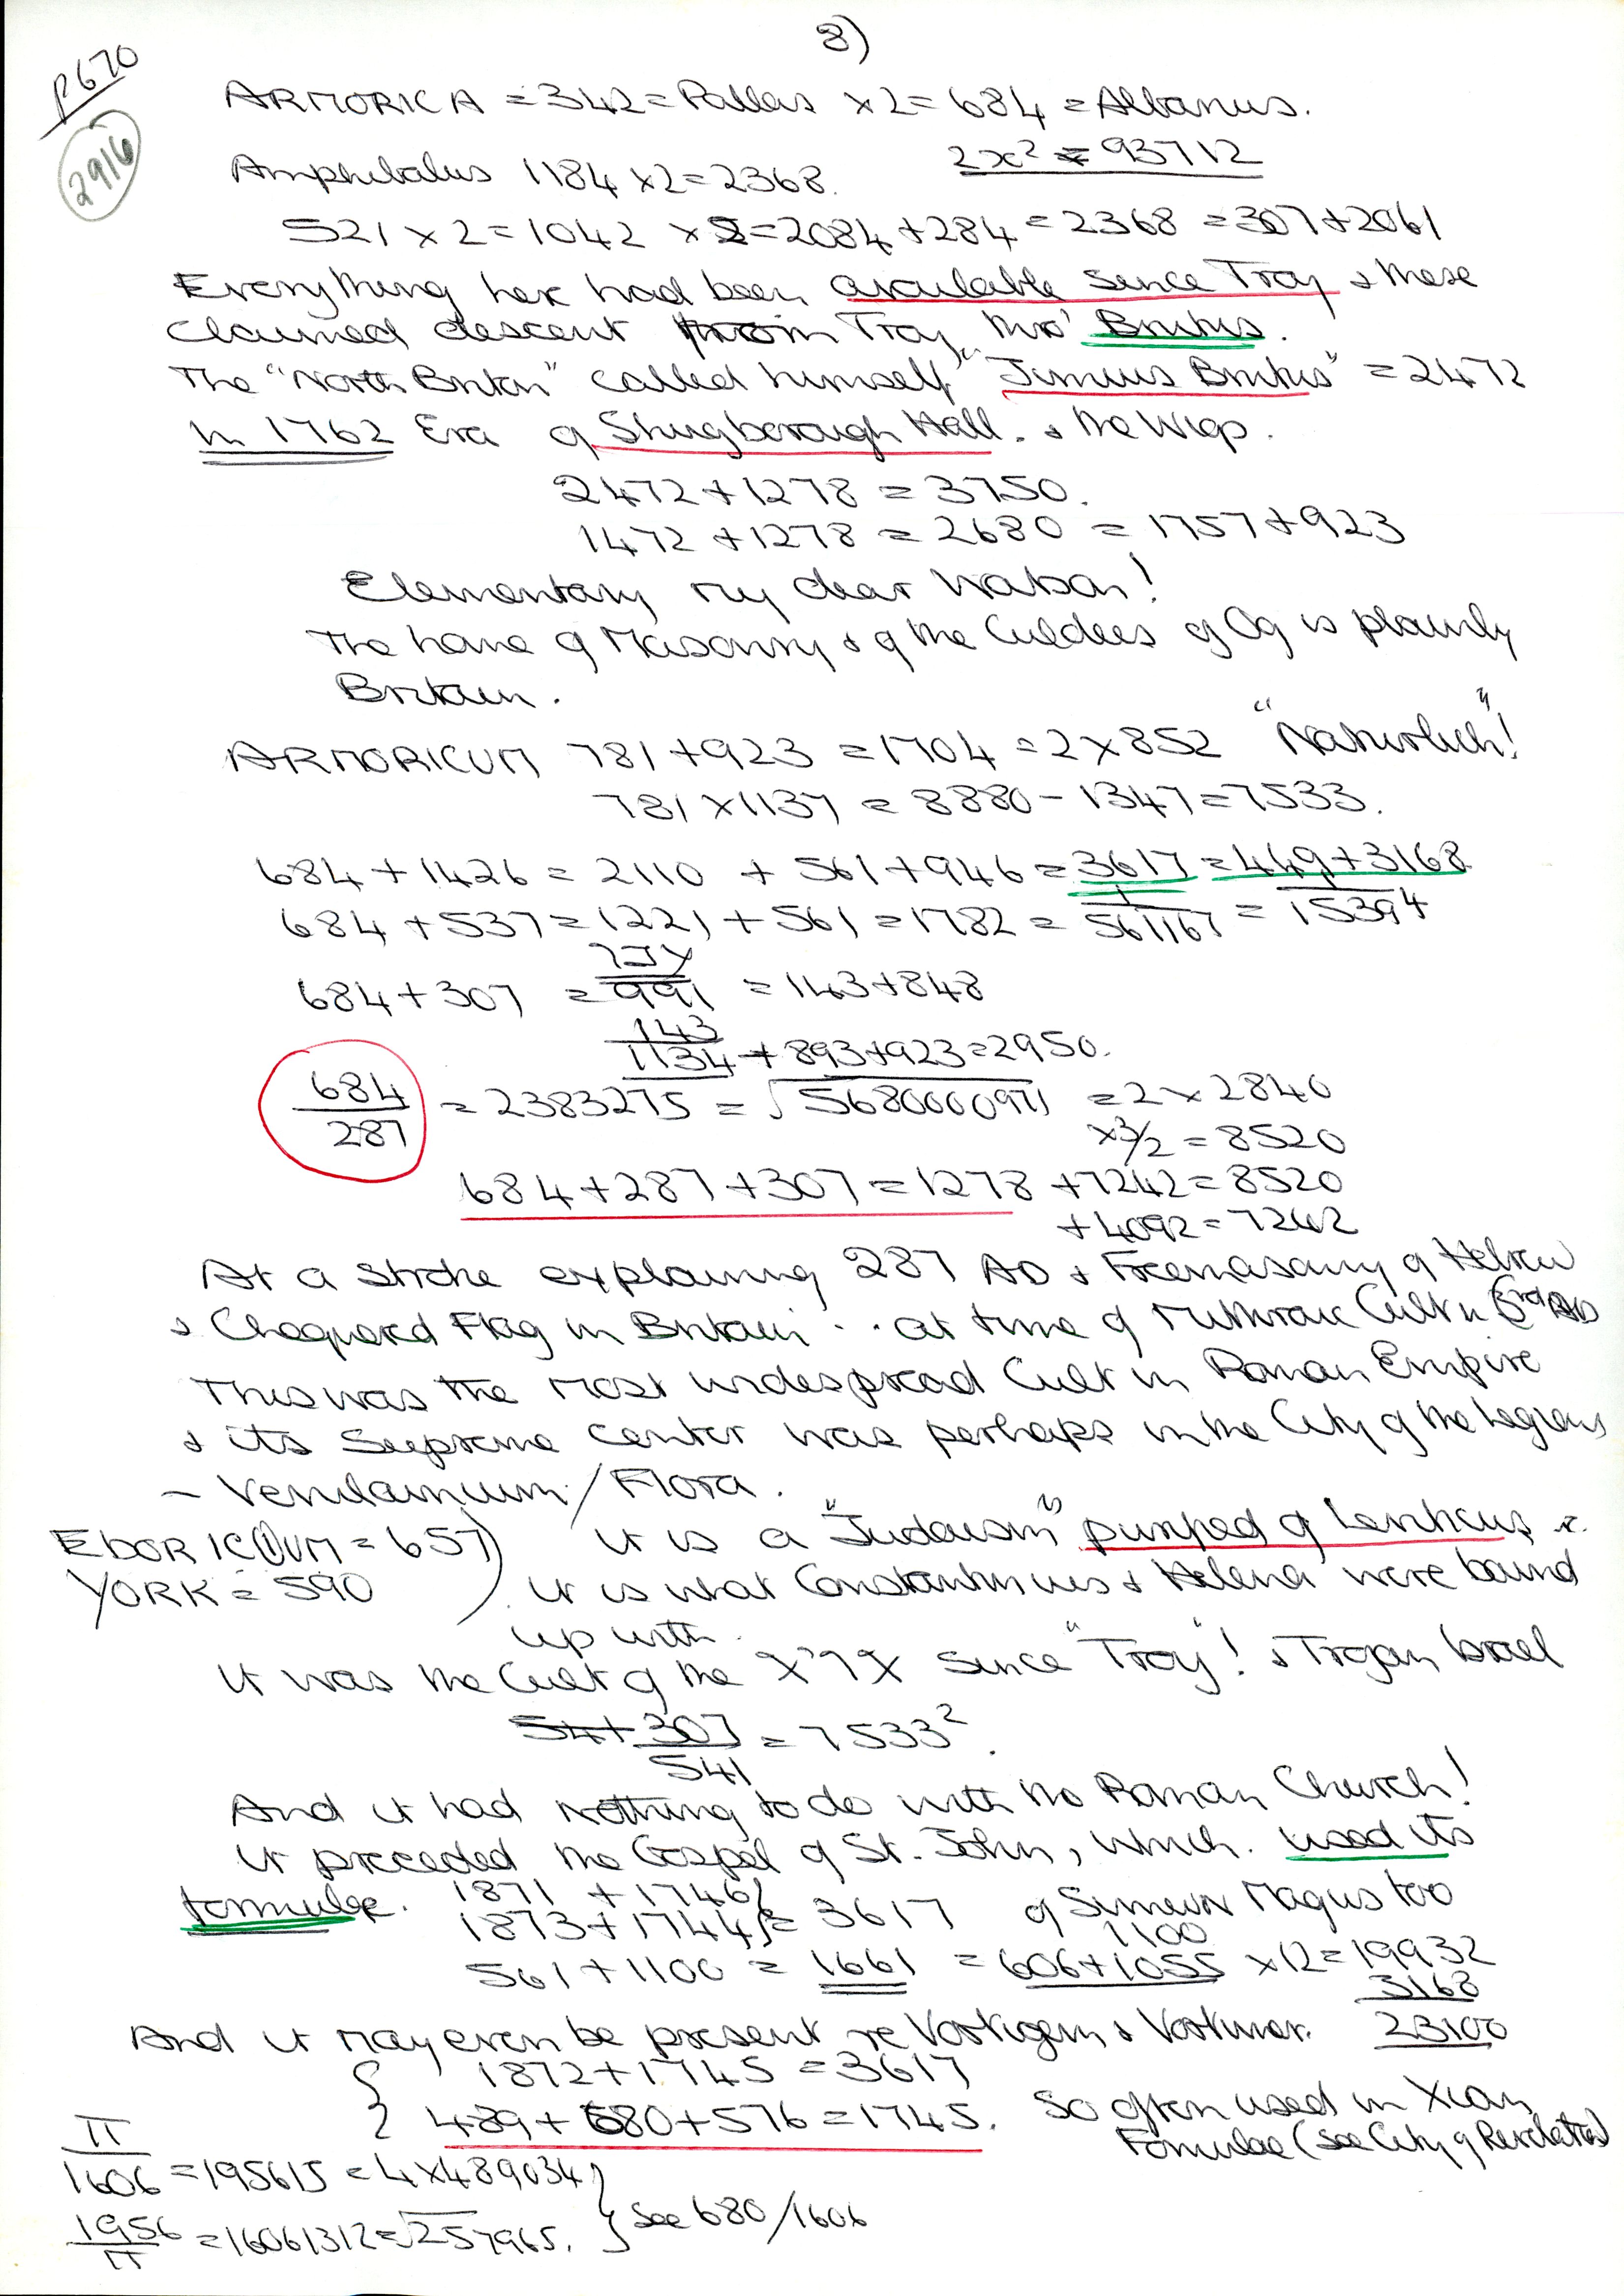 8)
P620
2916
ARMORICA = 342 = Pallas x2 = 684 = Albanus.
2x² = 93712
Amphibalus 1184 x2 = 2368.
521 x 2 = 1042 x 2 = 2084 + 284 = 2368 = 307 + 2061
Everything here had been available since Troy & these
claimed descent from Troy, thro' Brutus.
The "North Briton" called himself "Junius Brutus" = 2472
In 1762 Era of Shugborough Hall. & the Wigs.
2472 + 1278 = 3750.
1472 + 1278 = 2680 = 1757 + 923
Elementary my dear Watson!
The home of Masonry & of the Culdees of Og is plainly
Britain.
ARMORICUM 781 + 923 = 1704 = 2 x 852 "Naturlich"!
781 x 1137 = 8880 - 1347 = 7533.
684 + 1426 = 2110 + 561 + 946 = 3617 = 449 + 3168
684 + 537 = 1221 + 561 = 1782 = 1/561167 = 15394
684 + 307 = 991 = 143 + 848
143
1134 + 893 + 923 = 2950.
684/287 = 2383275 = √5680000971 = 2 x 2840
x 3/2 = 8520
684 + 287 + 307 = 1278 + 7242 = 8520
+ 4092 = 7242
At a stroke explaining 287 AD & Freemasonry of Hebrew
& Chequered Flag in Britain .. at time of Mithraic Cult in 3rd AD
This was the most widespread Cult in Roman Empire
& its Supreme center was perhaps in the City of the Legions
- Verulamium / Flora.
EBORICUM = 657
YORK = 590
It is a "Judaism" purged of Leviticus &
it is what Constantinus & Helena were bound
up with.
It was the Cult of the since "Troy"! & Trojan Israel
54+ 307/541 = 7533²
And it had nothing to do with the Roman Church!
It preceded the Gospel of St. John, which used its
formulae. 1871 + 1746
1873 + 1744 } = 3617 of Simeon Magus too
1100
561 + 1100 = 1661 = 606 + 1055 x 12 = 19932
3168
23100
And it may even be present re Vortigern & Vortimer.
1872 + 1745 = 3617
489 + 680 + 576 = 1745. So often used in Xian
Formulae (see City of Revelation)
π/1606 = 195615 = 4 x 489034
1956/π = 16061312 = √257965. } see 680/1606